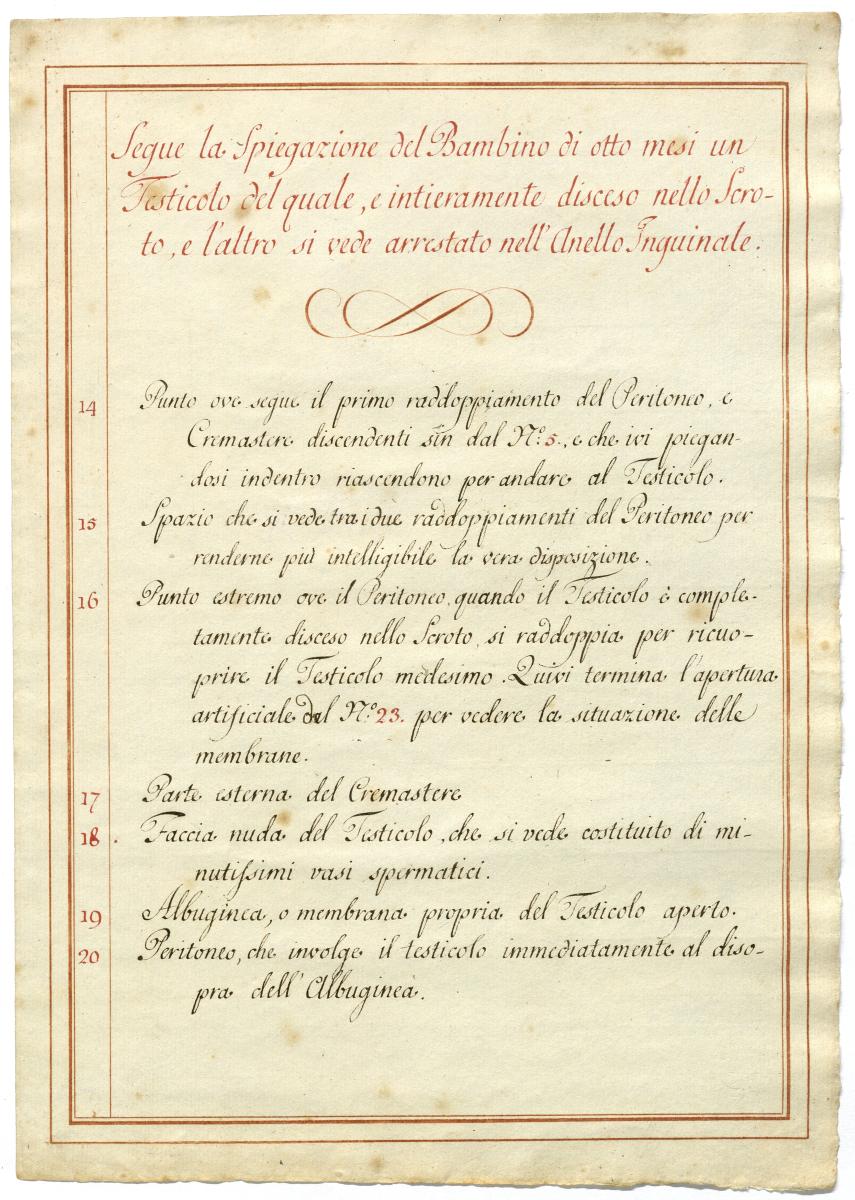 Segue la Spiegazione del Bambino di otto mesi un
Testicolo del quale, e intieramente disceso nello Scro-
to, e l'altro si vede arrestato nell'Anello Inguinale.
14 Punto ove segue il primo raddoppiamento del Peritoneo, e
Cremastere discendenti sin dal N.º 5., e che ivi piegan-
dosi indentro riascendono per andare al Testicolo.
15 Spazio che si vede tra i due raddoppiamenti del Peritoneo per
renderne più intelligibile la vera disposizione.
16 Punto estremo ove il Peritoneo, quando il Testicolo è comple-
tamente disceso nello Scroto, si raddoppia per ricuo-
prire il Testicolo medesimo. Quivi termina l'apertura
artificiale del N.º 23. per vedere la situazione delle
membrane.
17 Parte esterna del Cremastere
18. Faccia nuda del Testicolo, che si vede costituito di mi-
nutissimi vasi spermatici.
19 Albuginea, o membrana propria del Testicolo aperto.
20 Peritoneo, che involge il testicolo immediatamente al diso-
pra dell'Albuginea.